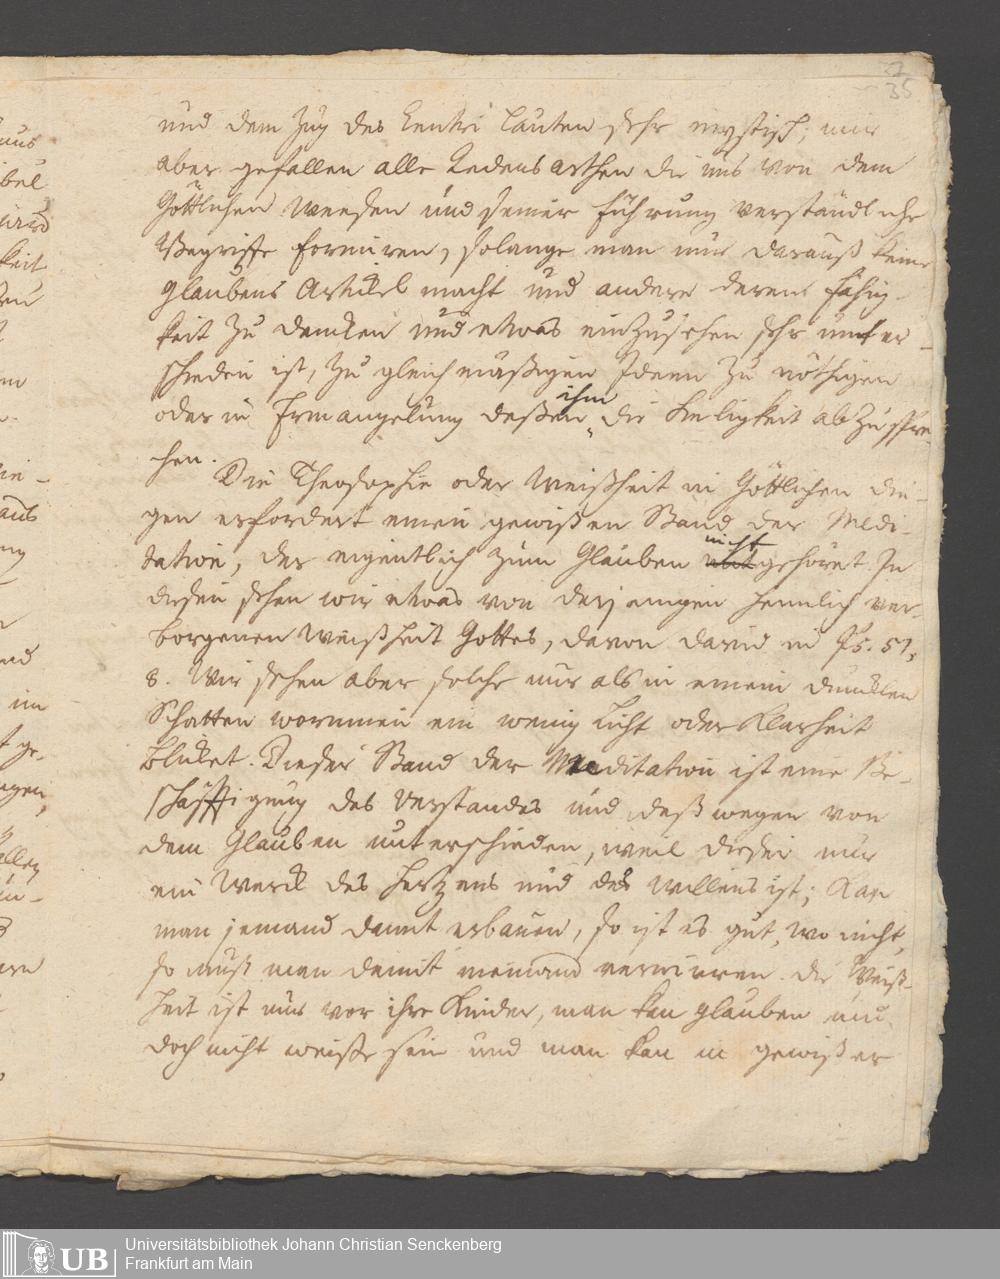 35
und dem Zug des Centri lauten sehr mystisch; mir
aber gefallen alle Redens arthen die uns von dem
Göttlichen Weesen und seiner führung verständliche
Begriffe formiren, solange man nur darauß keine
glaubens Articel macht und andere deren fähig-
keit zu dencken und etwas einzusehen sehr unter-
schieden ist, zu gleichmäßigen Ideen zu nöthigen
oder in Ermangelung deßen ihm die Seligkeit abzuspre-
chen.
Die Theosophie oder Weißheit in Göttlichen Din-
gen erfordert einen gewißen Stand der Medi-
tation, der eigentlich zum Glauben nicht gehöret. In
diesen sehen wir etwas von derjenigen heimlich ver-
borgenen Weißheit Gottes, davon David in Ps. 51,
8. Wir sehen aber solche nur als in einem duncklen
Schatten worinnen ein wenig Licht oder Klarheit
blicket. Dieser Stand der Meditation ist eine Be-
schäfftigung des Verstandes und deßwegen von
dem Glauben unterschieden, weil dieser nur
ein Werck des Hertzens und des Willens ist; Kan
man jemand damit erbauen, so ist es gut, wo nicht,
so muß man damit niemand verwirren. die Weiß-
heit ist nur vor ihre Kinder, man kan glauben und
doch nicht weiße sein und man kan in gewißer
UB
Universitätsbibliothek Johann Christian Senckenberg
Frankfurt am Main